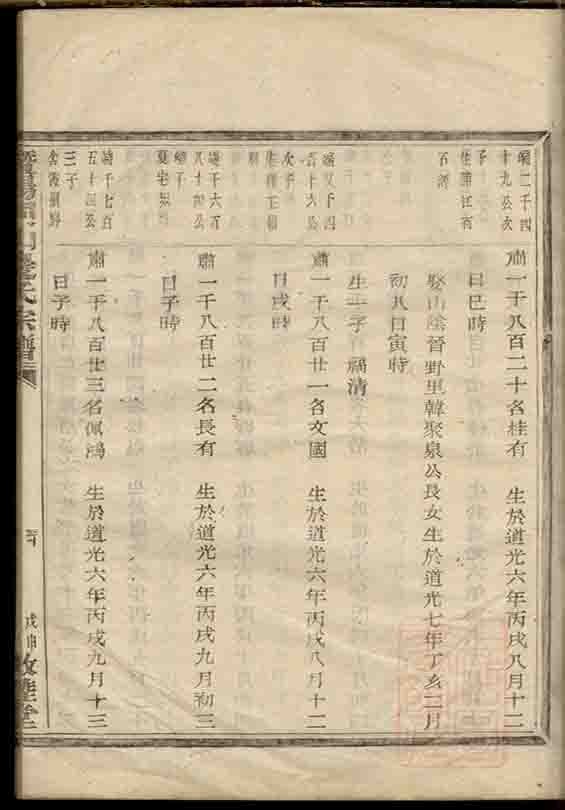 端二千四
十九公次
子
肅一千八百二十名桂有 生於道光六年丙戌八月十二
日巳時
娶山陰晉野里韓聚泉公長女生於道光七年丁亥二月
初八日寅時
生一子 福清
百十六公
次子
肅一千八百廿一名文國 生於道光六年丙戌八月十二
日戌時
千六百
八十四公
肅一千八百廿二名長有 生於道光六年丙戌九月初三
日子時
千七百
五十四公
三子
肅一千八百廿三名佩鴻 生於道光六年丙戌九月十三
日子時
氏宗譜
戊申